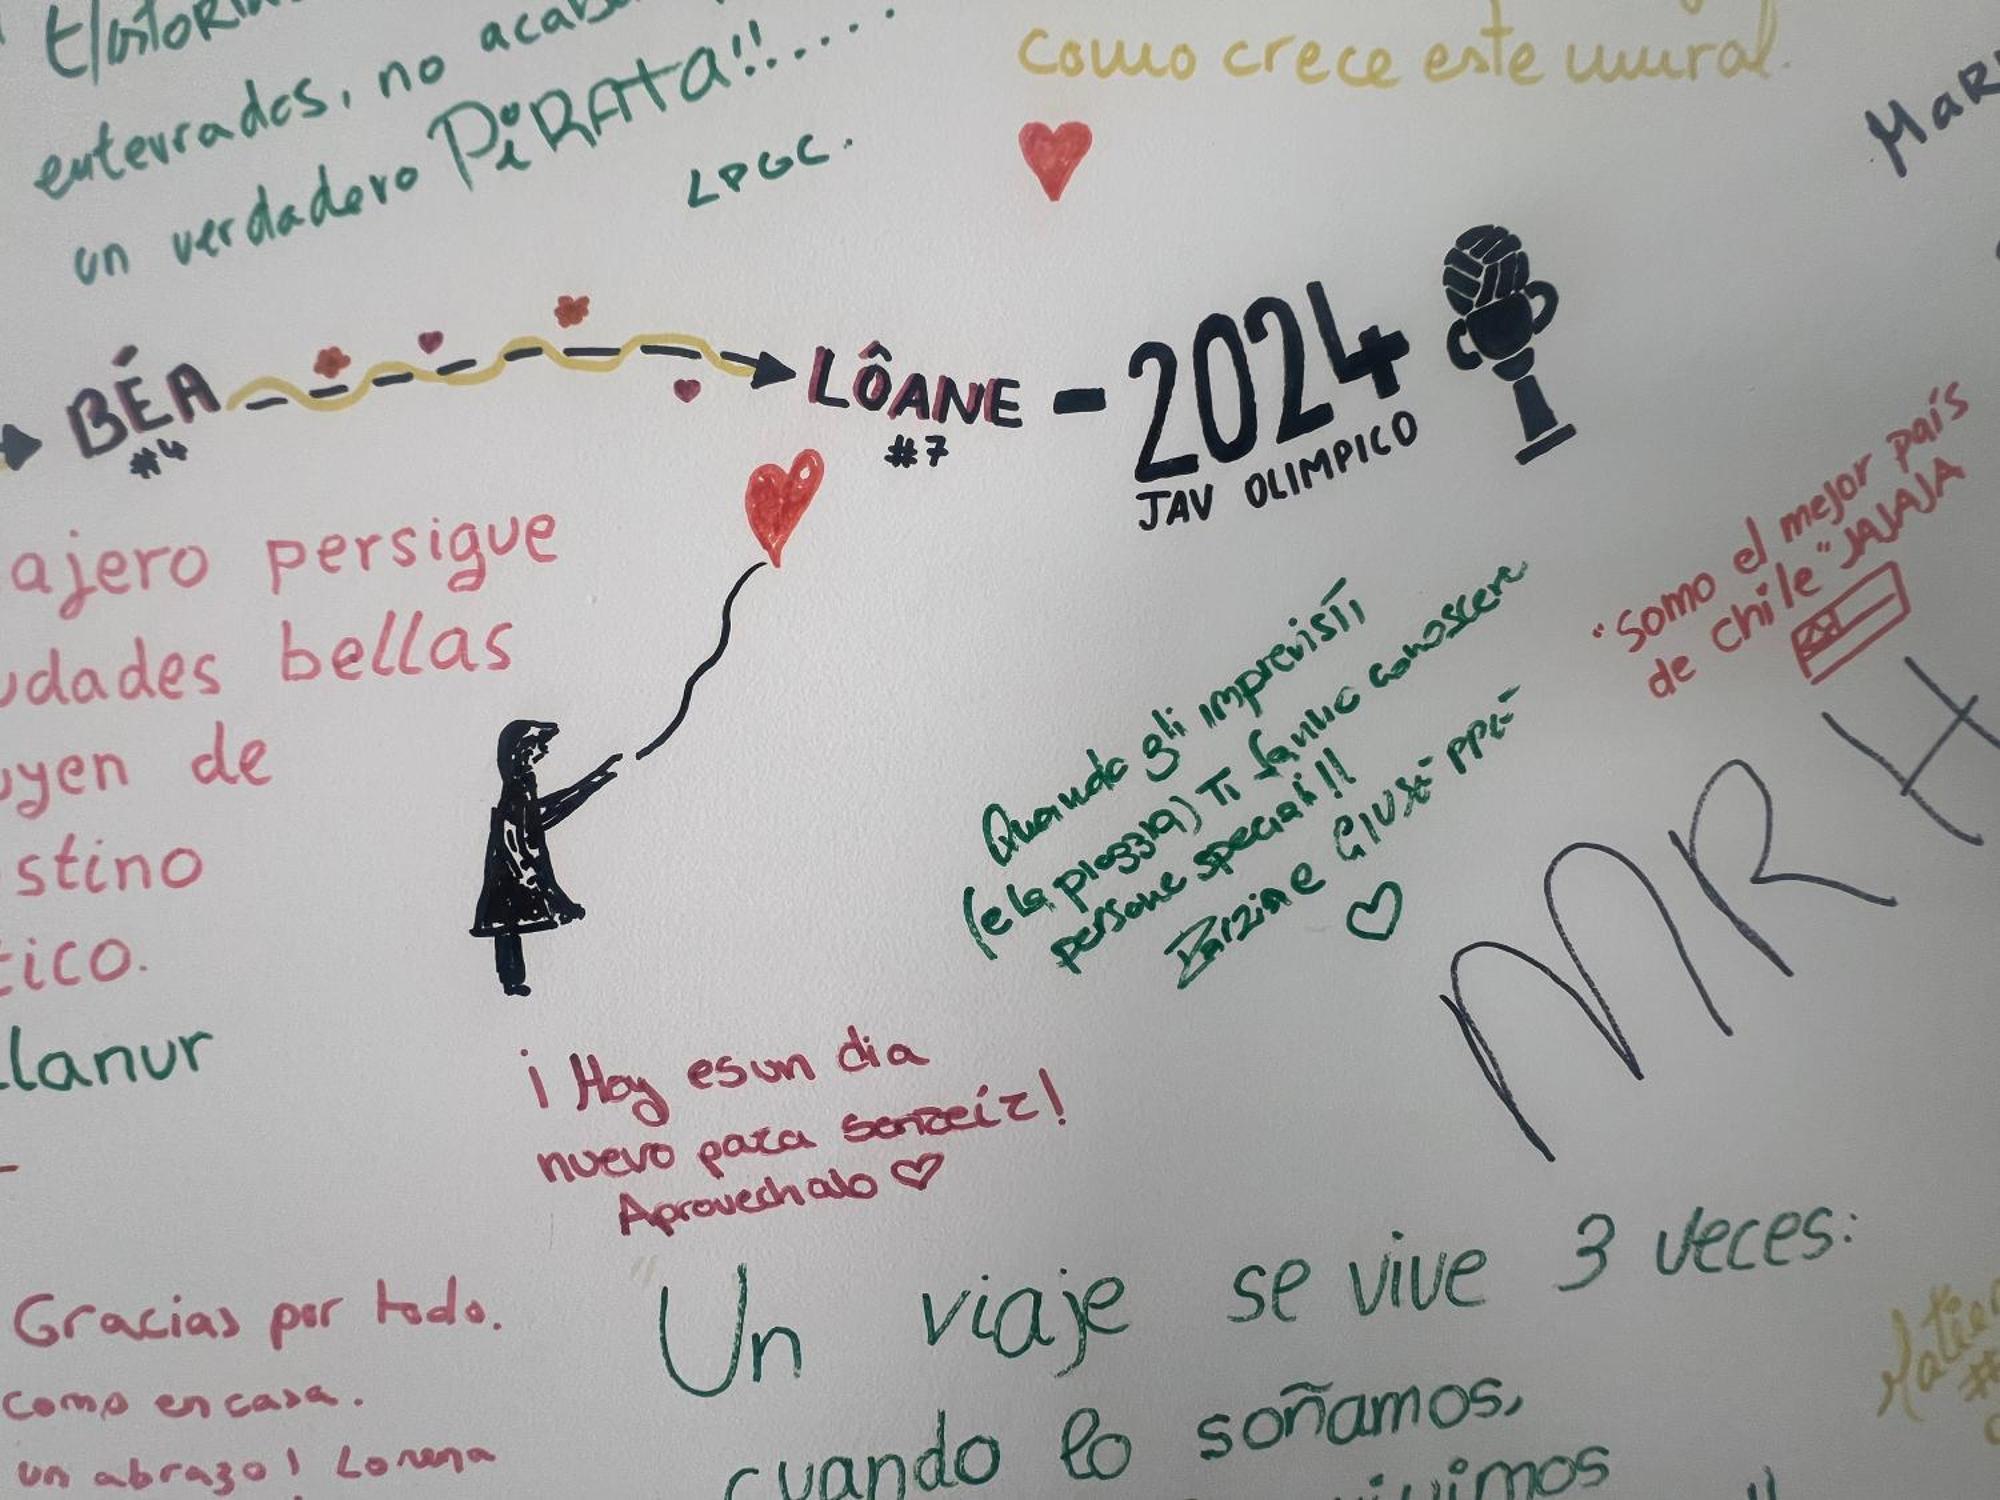 enterrados, no
un verdadero PiRATA!!....
LPGC.
como crece este mural.
BÉA
#4
LÔANE - 2024
#7
JAV OLIMPICO
ajero persigue
udades bellas
uyen de
stino
tico.
llanur
"somo el mejor país
de chile" JAJAJA
Quando gli imprevisti
(e la pioggia) Ti fanno conoscere
persone speciali!!
MRH
¡Hoy es un dia
nuevo para sonreír!
Aprovechalo
Gracias por todo.
como en casa.
un abrazo! Lorena
Un viaje se vive 3 veces:
cuando lo soñamos,
vivimos